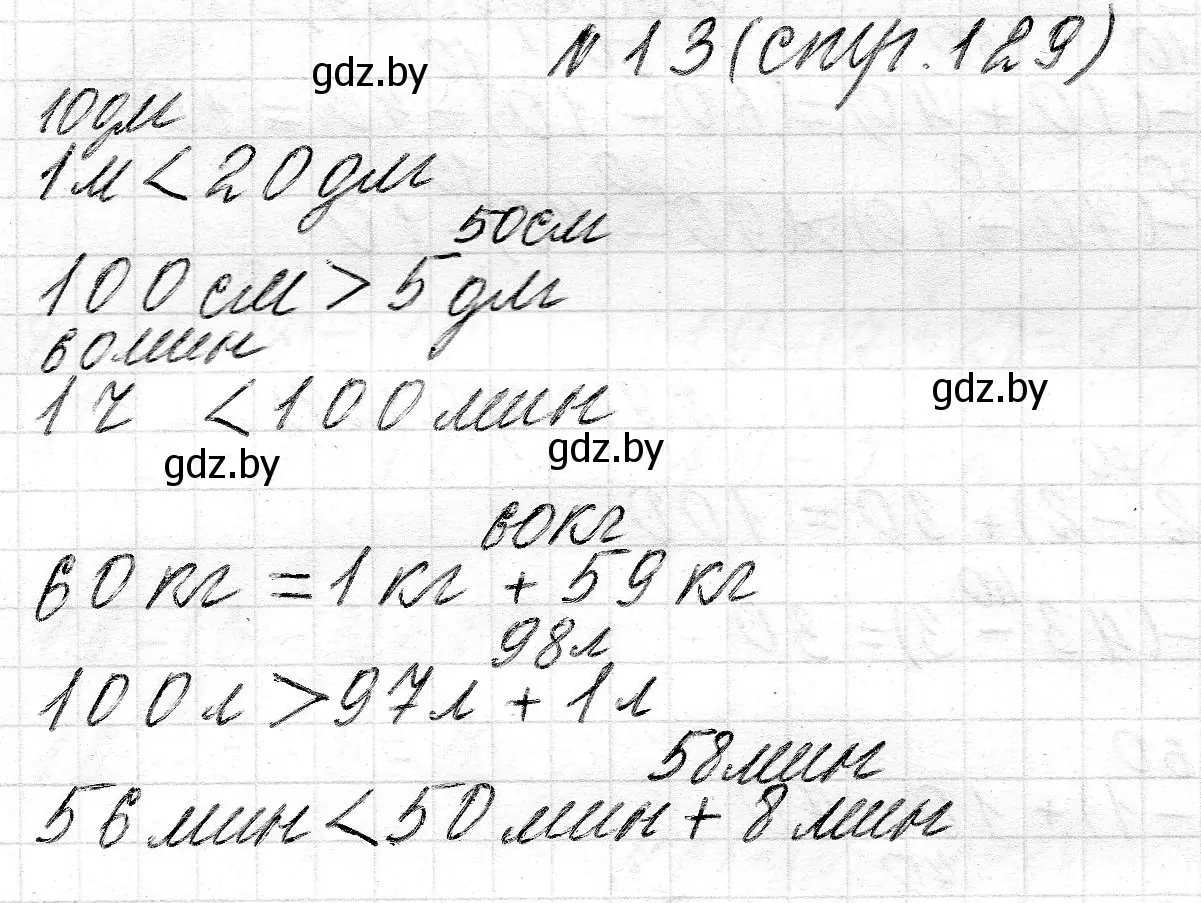 № 13 (стр. 129)
gdz.by
10дм
1м < 20дм
50см
100см > 5дм
60мин
1ч < 100мин
gdz.by
gdz.by
gdz.by
60кг
60кг = 1кг + 59кг
98л
100л > 97л + 1л
58мин
56мин < 50мин + 8мин